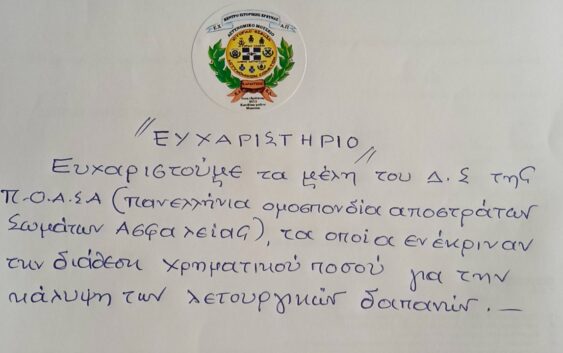 ΚΕΝΤΡΟ ΙΣΤΟΡΙΚΗΣ ΕΡΕΥΝΑΣ
ΑΣΤΥΝΟΜΙΚΟ ΜΟΥΣΕΙΟ
"ΕΥΧΑΡΙΣΤΗΡΙΟ"
Ευχαριστούμε τα μέλη του Δ.Σ της
Π.Ο.Α.ΣΑ (πανελλήνια ομοσπονδία αποστράτων
Σωμάτων Ασφαλείας), τα οποία ενέκριναν
την διάθεση χρηματικού ποσού για την
κάλυψη των λετουργικών δαπανών. —